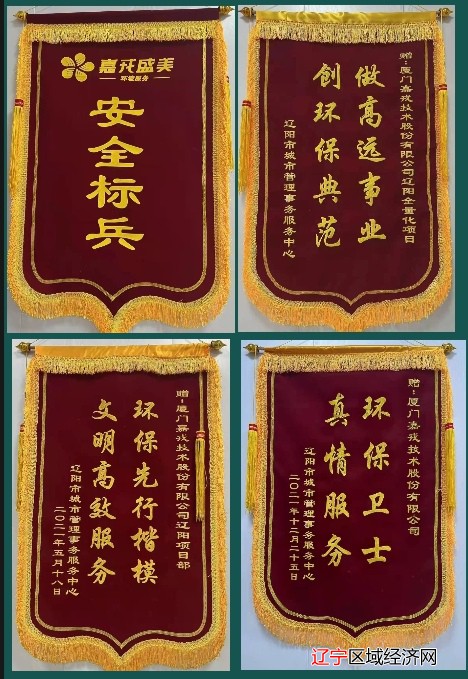 嘉戎盛美
环境服务
安全标兵
赠:厦门嘉戎技术股份有限公司辽阳全量化项目
做高远事业
创环保典范
辽阳市城市管理事务服务中心
赠:厦门嘉戎技术股份有限公司辽阳项目部
环保先行楷模
文明高效服务
辽阳市城市管理事务服务中心
二〇二一年五月十八日
赠:厦门嘉戎技术股份有限公司
环保卫士
真情服务
辽阳市城市管理事务服务中心
二〇二一年十二月二十五日
辽宁区域经济网